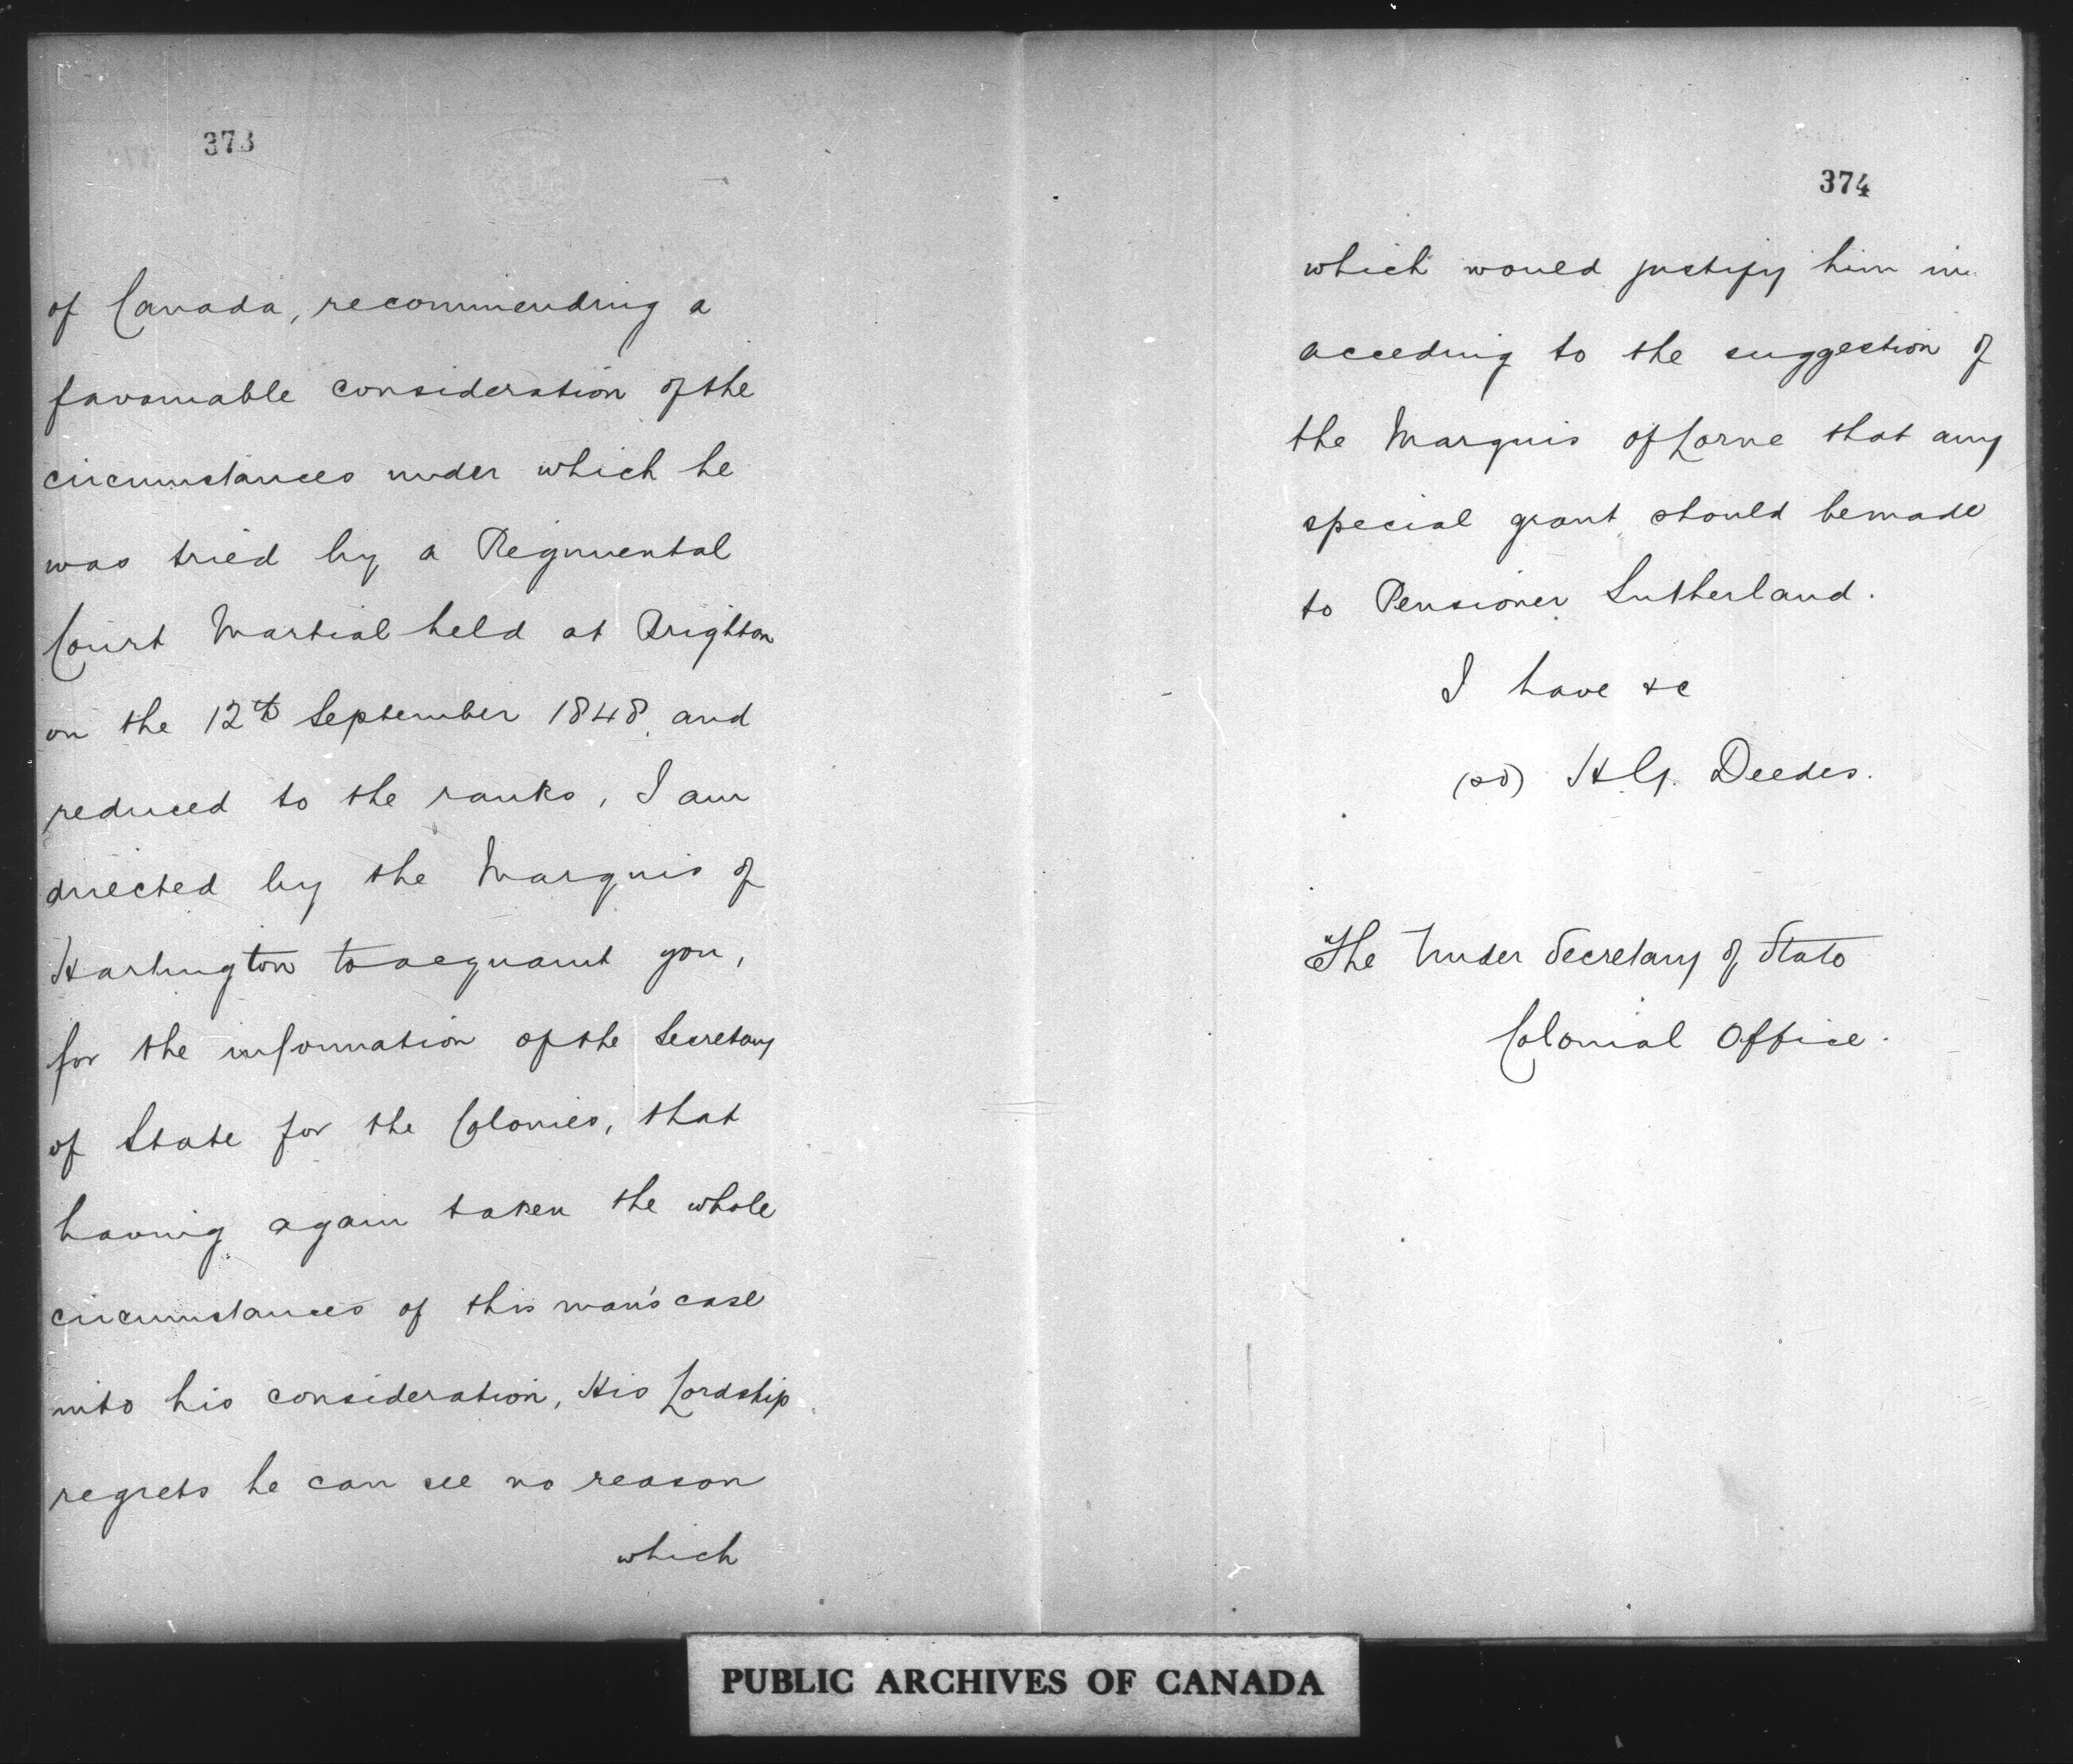 373
of Canada, recommending a
favourable consideration of the
circumstances under which he
was tried by a Regimental
Court Martial held at Brighton
on the 12th September 1848, and
reduced to the ranks, I am
directed by the Marquis of
Hartington to acquaint you,
for the information of the Secretary
of State for the Colonies, that
having again taken the whole
circumstances of this man's case
into his consideration, His Lordship
regrets he can see no reason
which
374
which would justify him in
acceding to the suggestion of
the Marquis of Lorne that any
special grant should be made
to Pensioner Sutherland.
I have &c
(sd) H.G. Deedes.
The Under Secretary of State
Colonial Office.
PUBLIC ARCHIVES OF CANADA